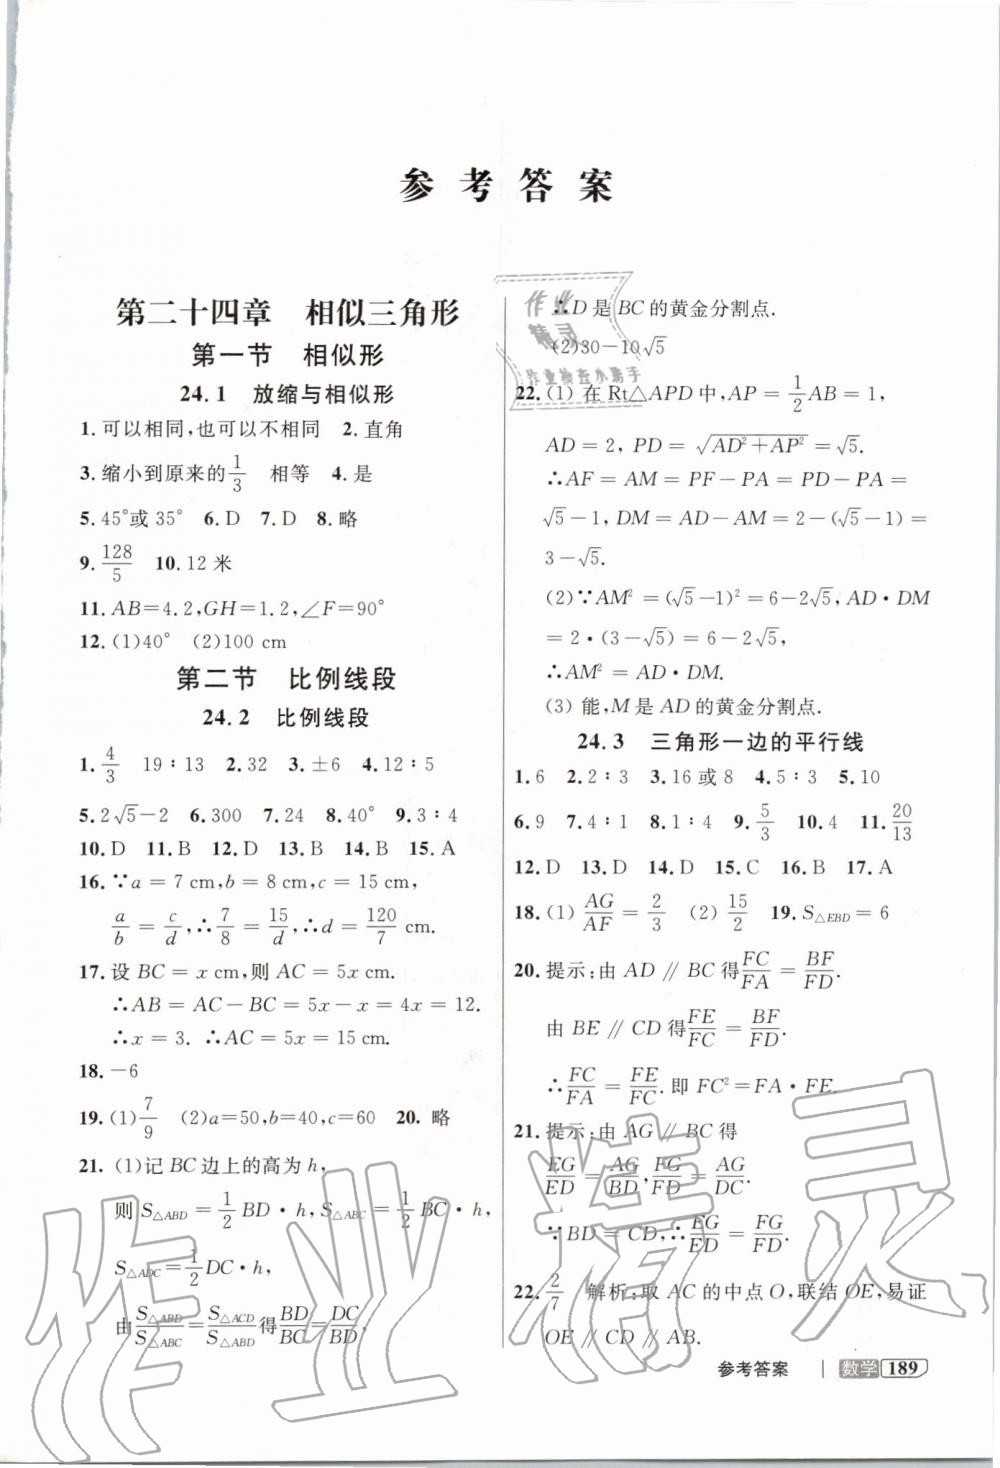 参考答案
第二十四章 相似三角形
第一节 相似形
24.1 放缩与相似形
1.可以相同,也可以不相同 2.直角
3.缩小到原来的1/3 相等 4.是
5.45°或35° 6.D 7.D 8.略
9.128/5 10.12米
11.AB=4.2,GH=1.2,∠F=90°
12.(1)40° (2)100 cm
第二节 比例线段
24.2 比例线段
1.4/3 19∶13 2.32 3.±6 4.12∶5
5.2√5-2 6.300 7.24 8.40° 9.3∶4
10.D 11.B 12.D 13.B 14.B 15.A
16.∵a=7 cm,b=8 cm,c=15 cm,
a/b=c/d,∴7/8=15/d,∴d=120/7 cm.
17.设BC=x cm,则AC=5x cm.
∴AB=AC-BC=5x-x=4x=12.
∴x=3. ∴AC=5x=15 cm.
18.-6
19.(1)7/9 (2)a=50,b=40,c=60 20.略
21.(1)记BC边上的高为h,
则S△ABD=1/2 BD·h,S△ABC=1/2 BC·h,
S△ADC=1/2 DC·h,
由S△ABD/S△ABC=S△ACD/S△ABD得BD/BC=DC/BD,
∴D是BC的黄金分割点.
(2)30-10√5
22.(1)在Rt△APD中,AP=1/2 AB=1,
AD=2,PD=√(AD²+AP²)=√5.
∴AF=AM=PF-PA=PD-PA=
√5-1,DM=AD-AM=2-(√5-1)=
3-√5.
(2)∵AM²=(√5-1)²=6-2√5,AD·DM
=2·(3-√5)=6-2√5,
∴AM²=AD·DM.
(3)能,M是AD的黄金分割点.
24.3 三角形一边的平行线
1.6 2.2∶3 3.16或8 4.5∶3 5.10
6.9 7.4∶1 8.1∶4 9.5/3 10.4 11.20/13
12.D 13.D 14.D 15.C 16.B 17.A
18.(1)AG/AF=2/3 (2)15/2 19.S△EBD=6
20.提示:由AD∥BC得FC/FA=BF/FD.
由BE∥CD得FE/FC=BF/FD.
∴FC/FA=FE/FC.即FC²=FA·FE.
21.提示:由AG∥BC得
EG/ED=AG/BD,FG/FD=AG/DC.
∵BD=CD,∴EG/ED=FG/FD.
22.2/7 解析:取AC的中点O,联结OE,易证
OE∥CD∥AB.
参考答案 | 数学 189
作业
精灵
作业检查小助手
作业精灵